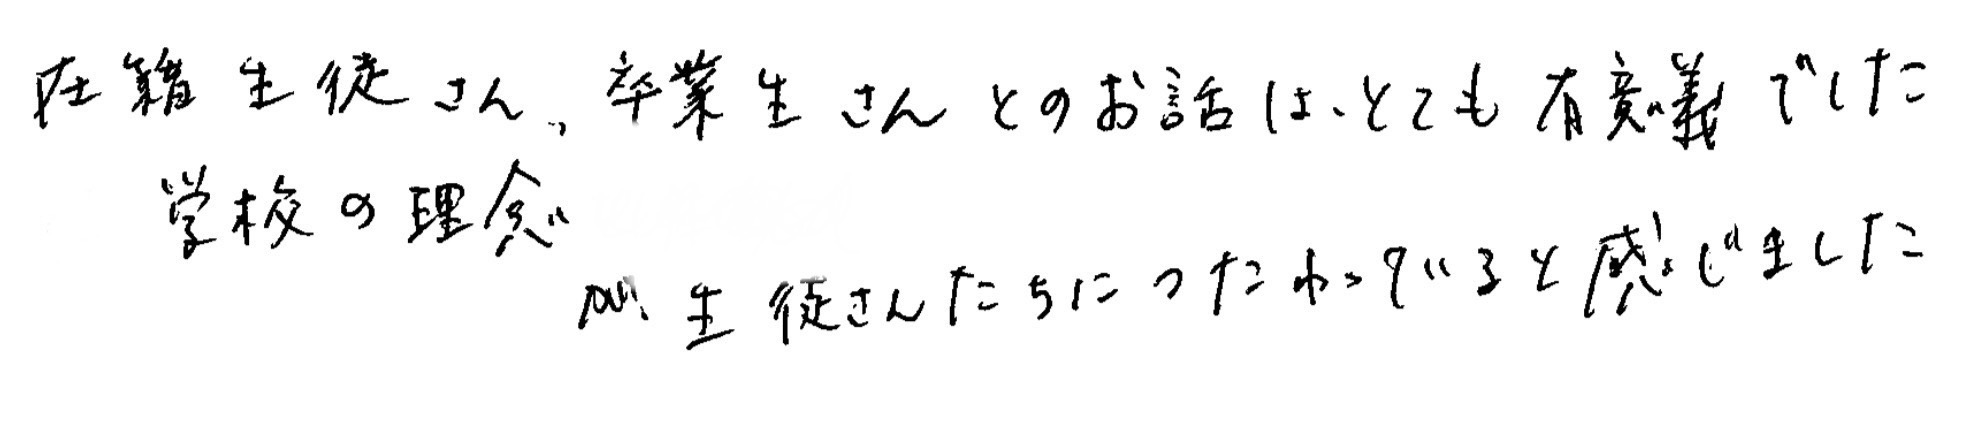 在籍生徒さん、卒業生さんとのお話は、とても有意義でした
学校の理念
が生徒さんたちにつたわっていると感じました